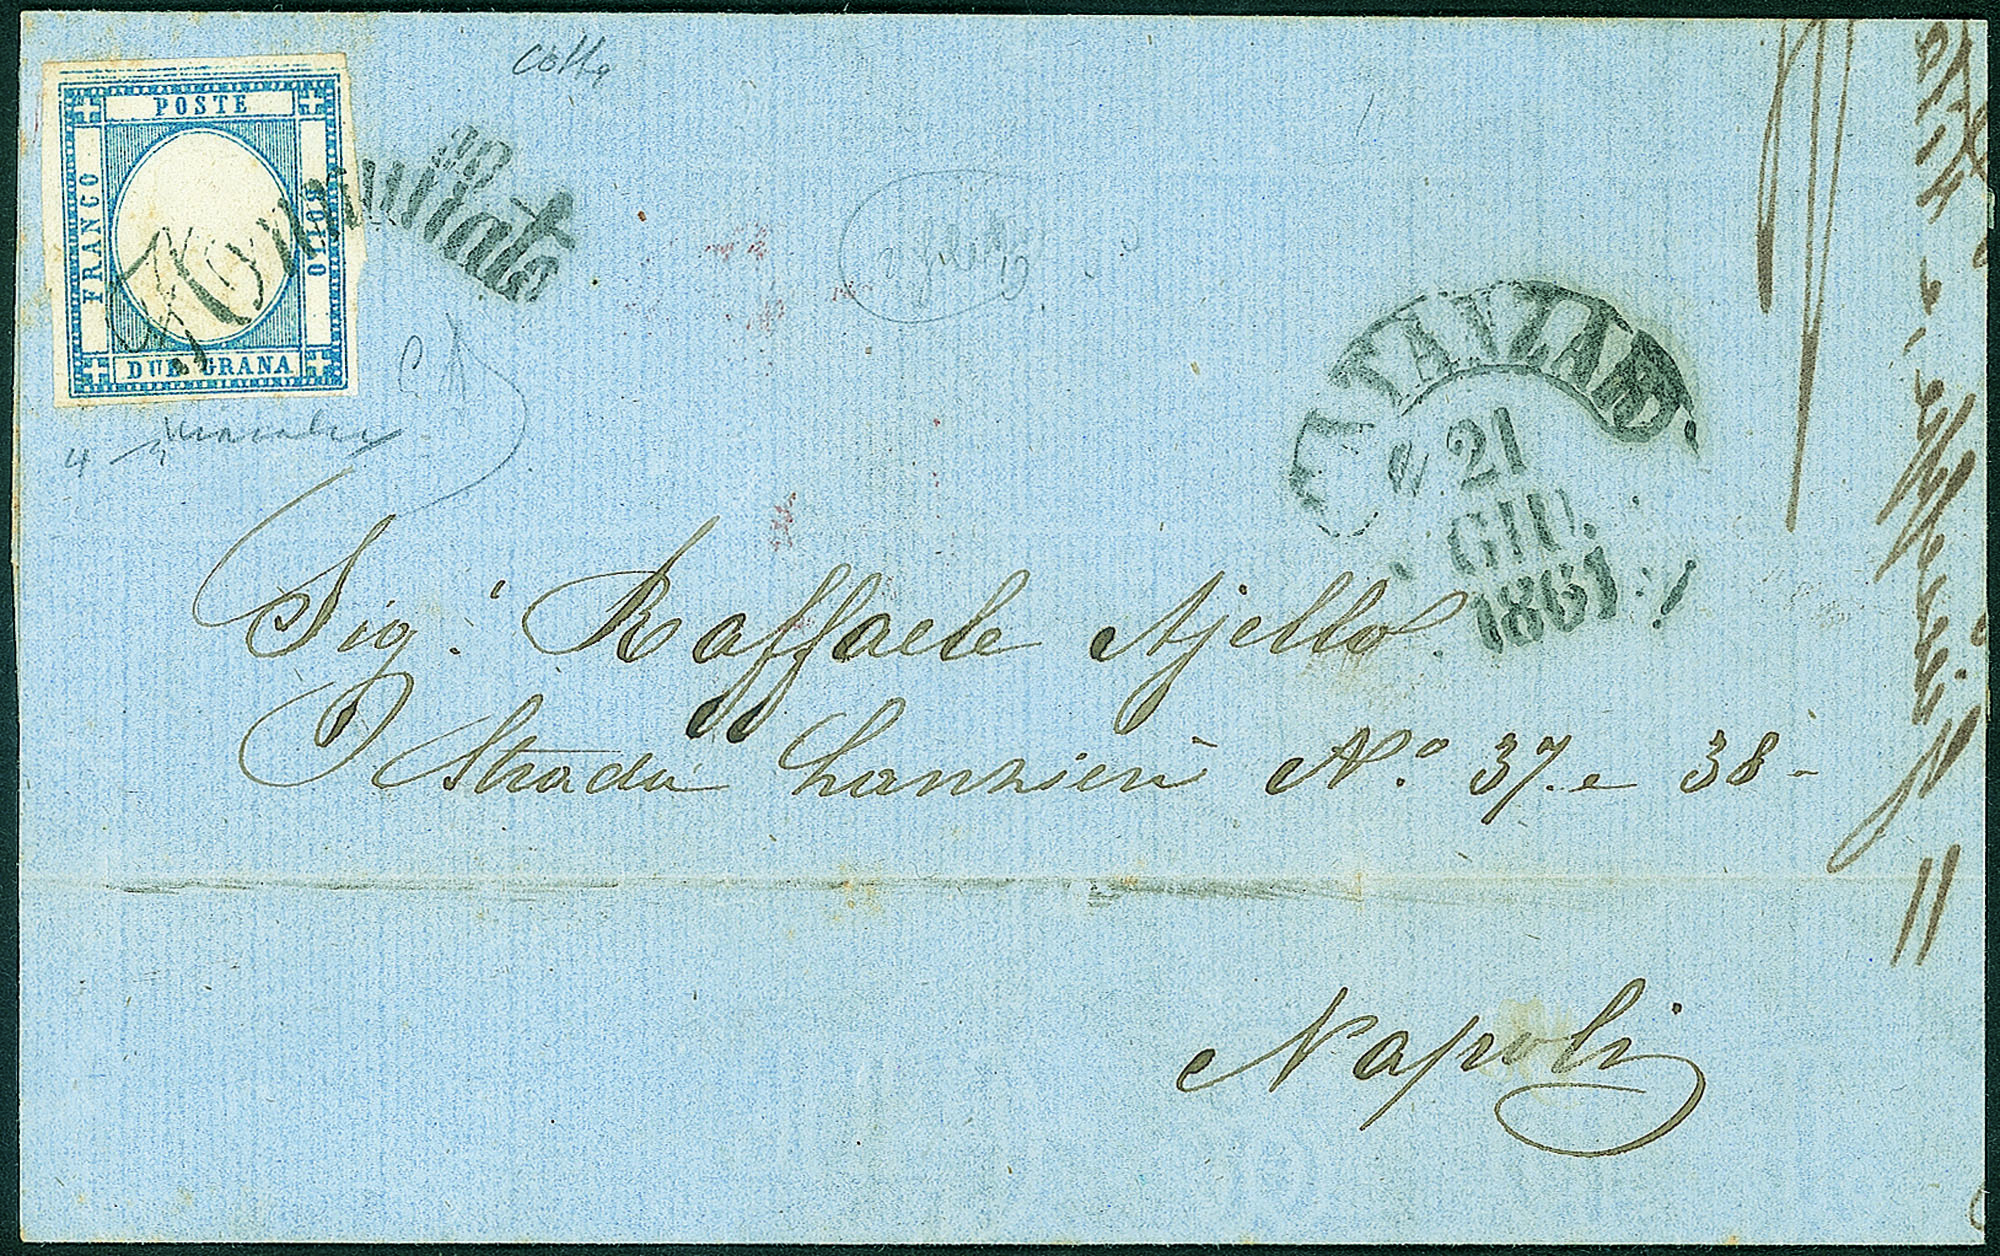 POSTE
FRANCO
BOLLO
DUE GRANA
Annullato
CATANZARO
21
GIU.
1861
Sig.r Raffaele Ajello
Strada Lanzieri N.o 37. e 38-
Napoli